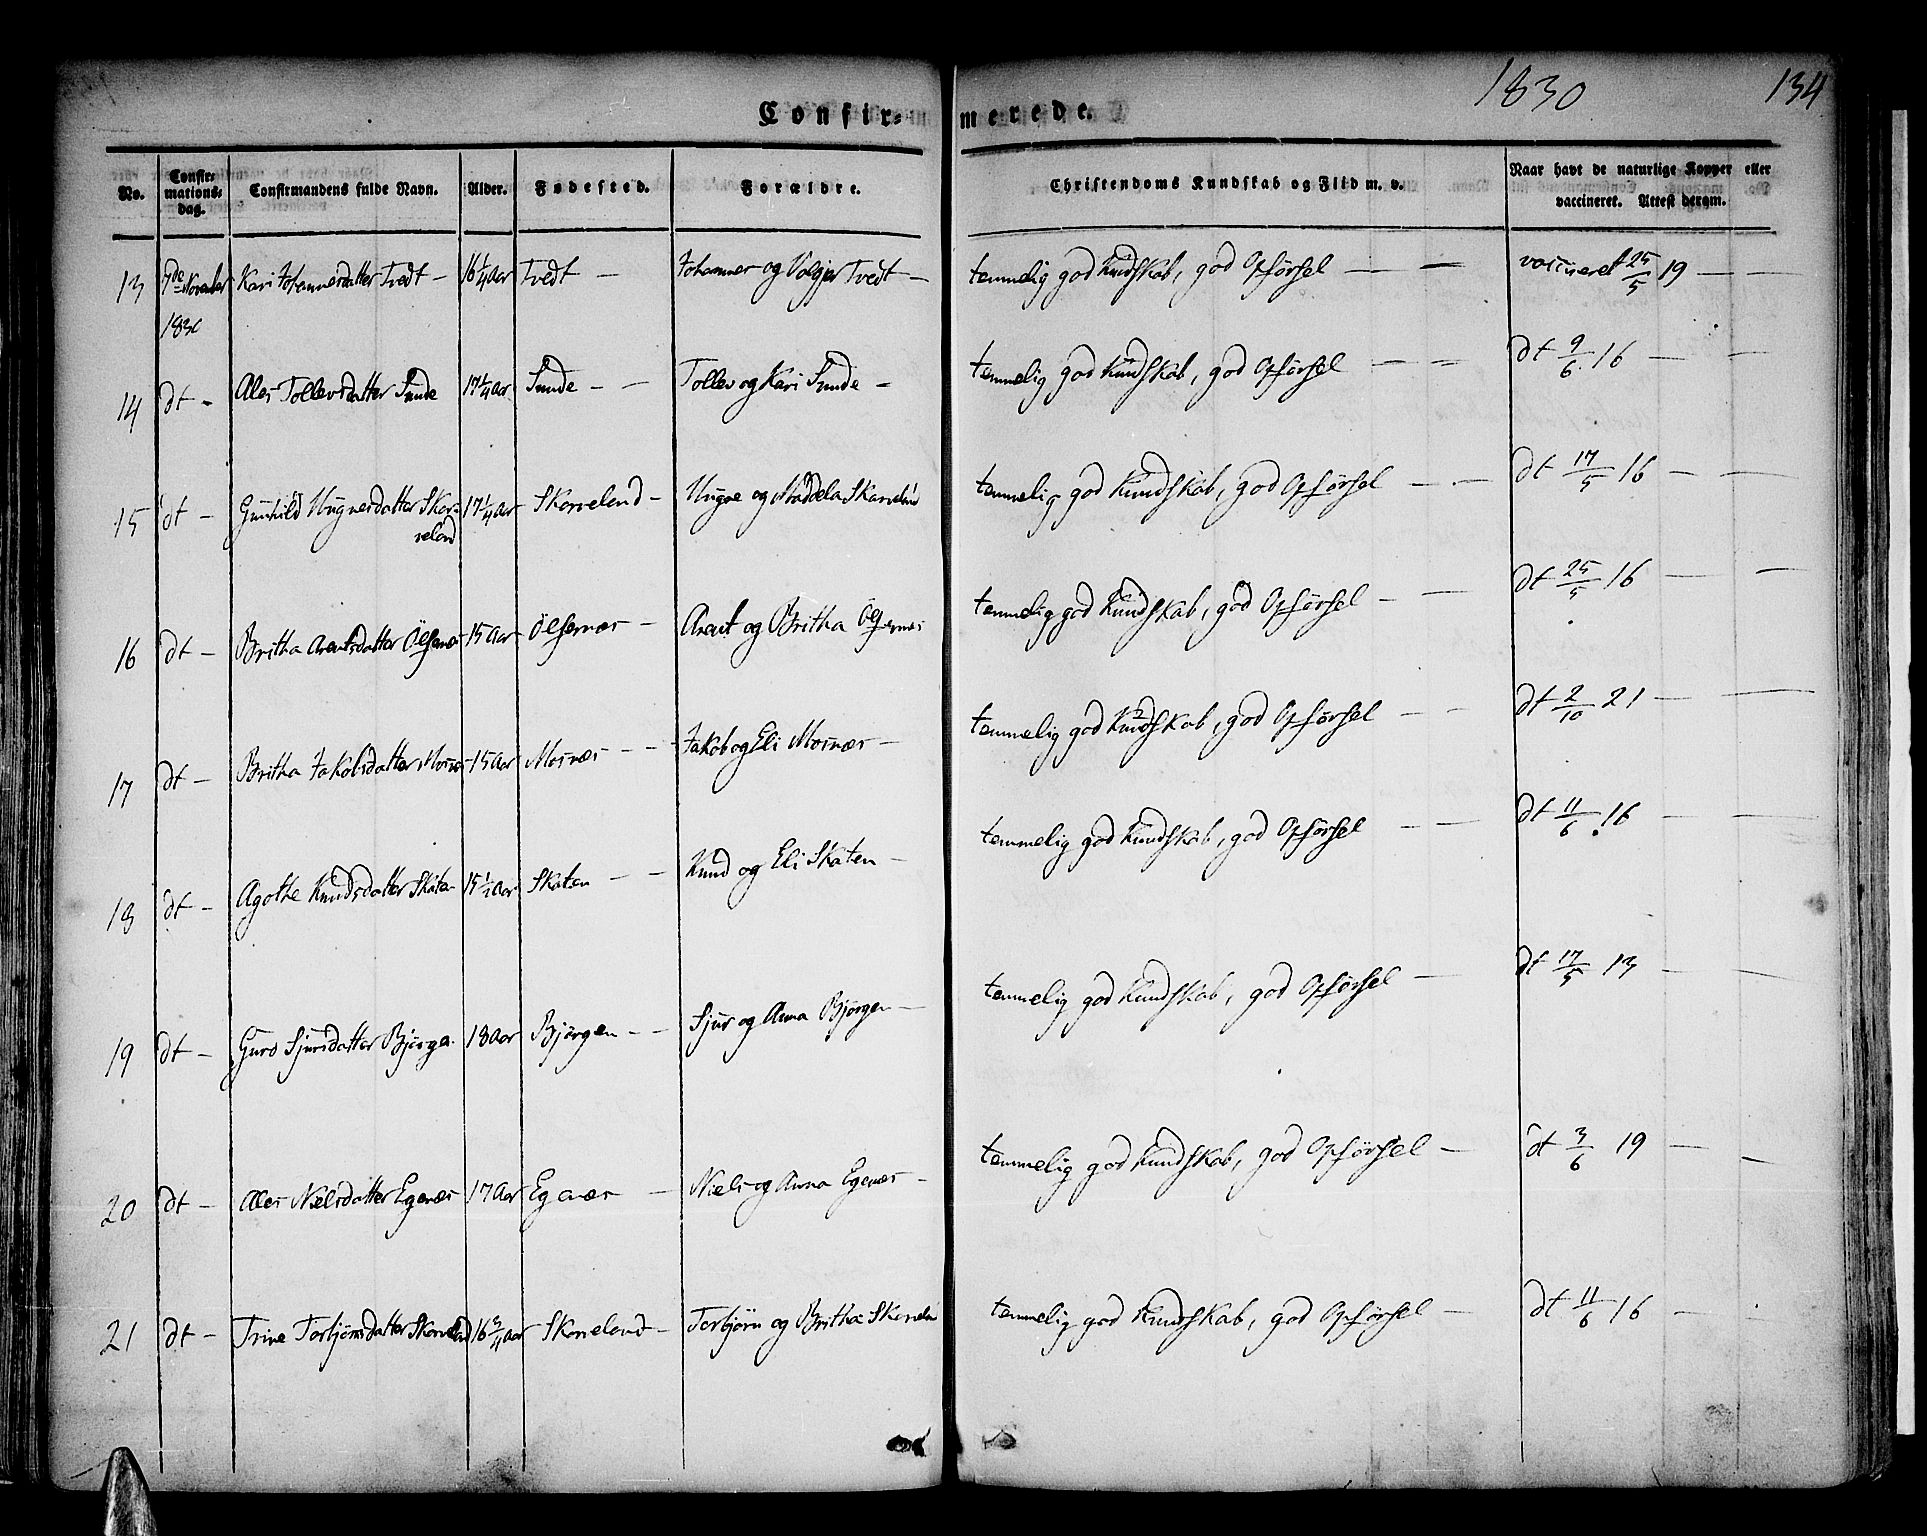 1830
134
Confir= merede.
No.
Confir-
mations-
dag.
Confirmandens fulde Navn.
Alder.
Fødested.
Forældre.
Christendoms Kundskab og Flid m. v.
Naar havt de naturlige Kopper eller
vaccineret. Attest derom.
13 7de November Kari Johannesdatter Tvedt – 16 1/4 Aar Tvedt – Johannes og Tvedt – temmelig god Kundskab, god Opførsel – – vaccineret 25/5 19 – –
1830
14 dt – Ales Tollevsdatter Sunde 17 1/4 Aar Sunde – – Tollev og Kari Sunde – temmelig god Kundskab, god Opførsel – – dt 9/6 16 – –
15 dt – Gunhild Skor= 17 1/4 Aar Skorveland – og Skorveland temmelig god Kundskab, god Opførsel – – dt 17/5 16 – –
veland
16 dt – Britha Arentsdatter Ölfernæs 15 Aar Ölfernæs – Arent og Britha Ölfernæs temmelig god Kundskab, god Opførsel – – dt 25/5 16 – –
17 dt – Britha Jakobsdatter Mosnæs 15 Aar Mosnæs – – Jakob og Eli Mosnæs – temmelig god Kundskab, god Opførsel – – dt 2/10 21 – –
18 dt – Agothe Knudsdatter Skaten 15 1/2 Aar Skaten – – Knud og Eli Skaten – temmelig god Kundskab, god Opførsel – – dt 11/6 16 – –
19 dt – Guro Sjursdatter Bjørgen 18 Aar Bjørgen – – Sjur og Anna Bjørgen – temmelig god Kundskab, god Opførsel – dt 17/5 13 – –
20 dt – Ales Nielsdatter Egenæs 17 Aar Egenæs – Niels og Anna Egenæs – temmelig god Kundskab, god Opførsel – dt 3/6 19 – –
21 dt – Trine Torbjørnsdatter Skorveland 16 3/4 Aar Skorveland – Torbjørn og Britha Skorveland temmelig god Kundskab, god Opførsel – dt 11/6 16 –